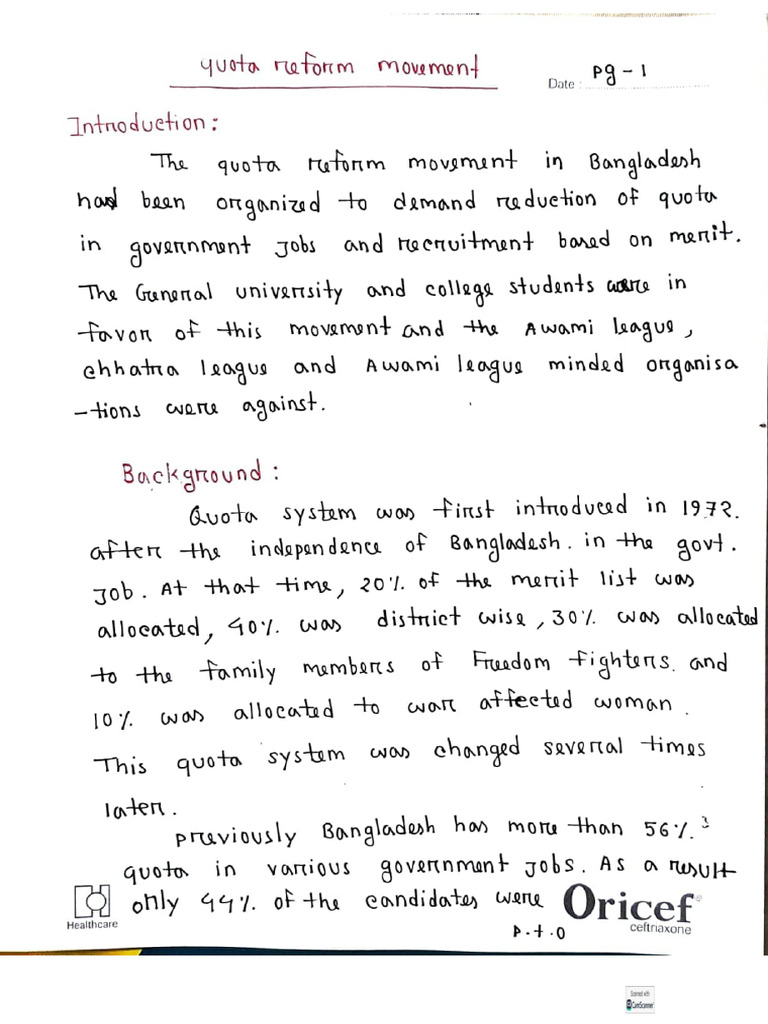 quota reform movement
Date : pg - 1
Introduction:
The quota reform movement in Bangladesh
had been organized to demand reduction of quota
in government Jobs and recruitment based on merit.
The General university and college students were in
favor of this movement and the Awami league,
chhatra league and Awami league minded organisa
-tions were against.
Background:
Quota system was first introduced in 1972.
after the independence of Bangladesh. in the govt.
Job. At that time, 20% of the merit list was
allocated, 40% was district wise, 30% was allocated
to the family members of Freedom fighters. and
10% was allocated to war affected woman.
This quota system was changed several times
later.
previously Bangladesh has more than 56%.
quota in various government jobs. As a result
only 44% of the candidates were
Healthcare
Oricef®
ceftriaxone
P.t.0
Scanned with
CamScanner